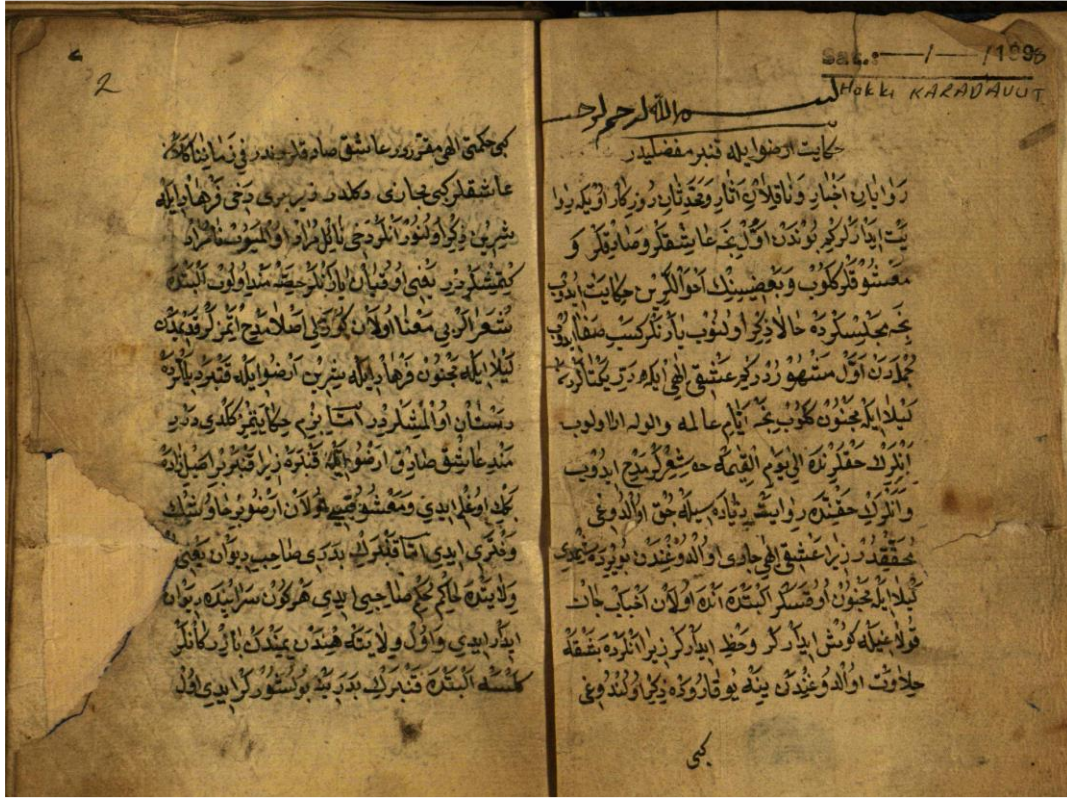 Sat.: —/—/1998
Hakkı KARADAVUT
بسم الله الرحمن الرحيم
حكايت ارضو ايله قنبر مفضليدر
راويان اخبار وناقلان اثار ومحدثان روزكار اويله روا
يت ايدرلركم بوندن اول نجه عاشقلر وصادقلر و
معشوقلر كلوب وبعضسنك احواللرين حكايت ايدوب
نجه مجلسلرده حالا ذكر اولنوب يارنلر كسب صفا ايدوب
جمله دن اول مشهوردركم عشق الهى ايله در يكتالرده
ليلا ايله مجنون كلوب نجه ايام عالمه والوله اولوب
انلرك حقلرنده الى يوم القيمه شعرلر مدح ايدوب
وانلرك حقنده روايت زياده سيله حق اولدوغى
محققدر زيرا عشق الهى جارى اولدوغندن بويرده
ليلا ايله مجنون اوقسلر البتده انده اولان احباب جان
قولاغيله كوش ايدرلر وحظ ايدرلر زيرا انلرده بشقه
حلاوت اولدوغندن ينه يوقاروده ذكر اولندوغى
كبى
2
كبى حكمتى الهى مقرردر عاشق صادقلر چندر فى زماننا
عاشقلر كبى مجازى دكلدر زير برى دخى فرهاد ايله
شيرين ذكر اولنور انلر دخى نايل مراد اولميوب نامراد
كتمشلردر يعنى اوقيان يارنلر حصه مند اولوب البتده
شعرالر بى معنا اولان كوزلى اصلا مدح ايتمزلر قديمدن
ليلا ايله مجنون فرهاد ايله شيرين ارضو ايله قنبر ديللرده
دستان اولمشلردر اما بزم حكايتمز كلدى درد
مند عاشق صادق ارضو ايله قنبره زيرا قنبر بر اصيل زاده
اوغلى ايدى ومعشوقه سى اولان ارضو بر چاوشك
دخترى ايدى اما قنبرك بدرى صاحب ديوان يعنى
ولايتده حاكم حكم صاحبى ايدى هركون سراينده ديوان
ايدر ايدى واول ولايته هندن يمندن بازركانلر
كلسه البتده قنبرك بدريله بولشورلر ايدى اول